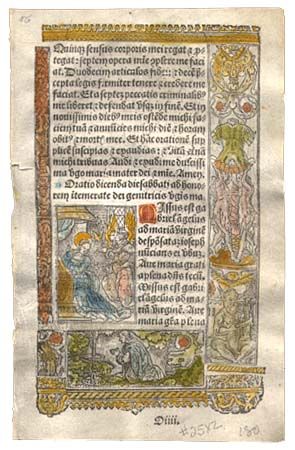 Quinqz sensus corporis mei regat & p̄
tegat: septem opera mīe opiere me faci
at. Duodecim articulos fidei: & decē p̄
cepta legis firmiter tenere & credere me
faciat. Et a septez peccatis criminalibꝰ
me liberet & defendat vsqz in finē. Et in
nouissimis diebꝰ meis ostēde michi fa
ciem tuā & annūcies michi diē & horam
obitꝰ & mortꝭ mee. Et hāc orationē sup
plicē suscipias & exaudias: & vitā eternā
michi tribuas Audi & exaudi me dulcissi
ma virgo maria mater dei & mīe. Amen.
Oratio dicenda die sabbati ad hono
rem intemerate dei genitricis virginis ma
Missus est ga
briel āgelus
ad mariā virginē
despōsatā ioseph
nūcians ei verbū.
Aue maria grati
a plena dn̄s tecū.
Missus est gabri
el āgelus ad ma
riā virginē. Aue
maria grā plena
Diiii.
#2582